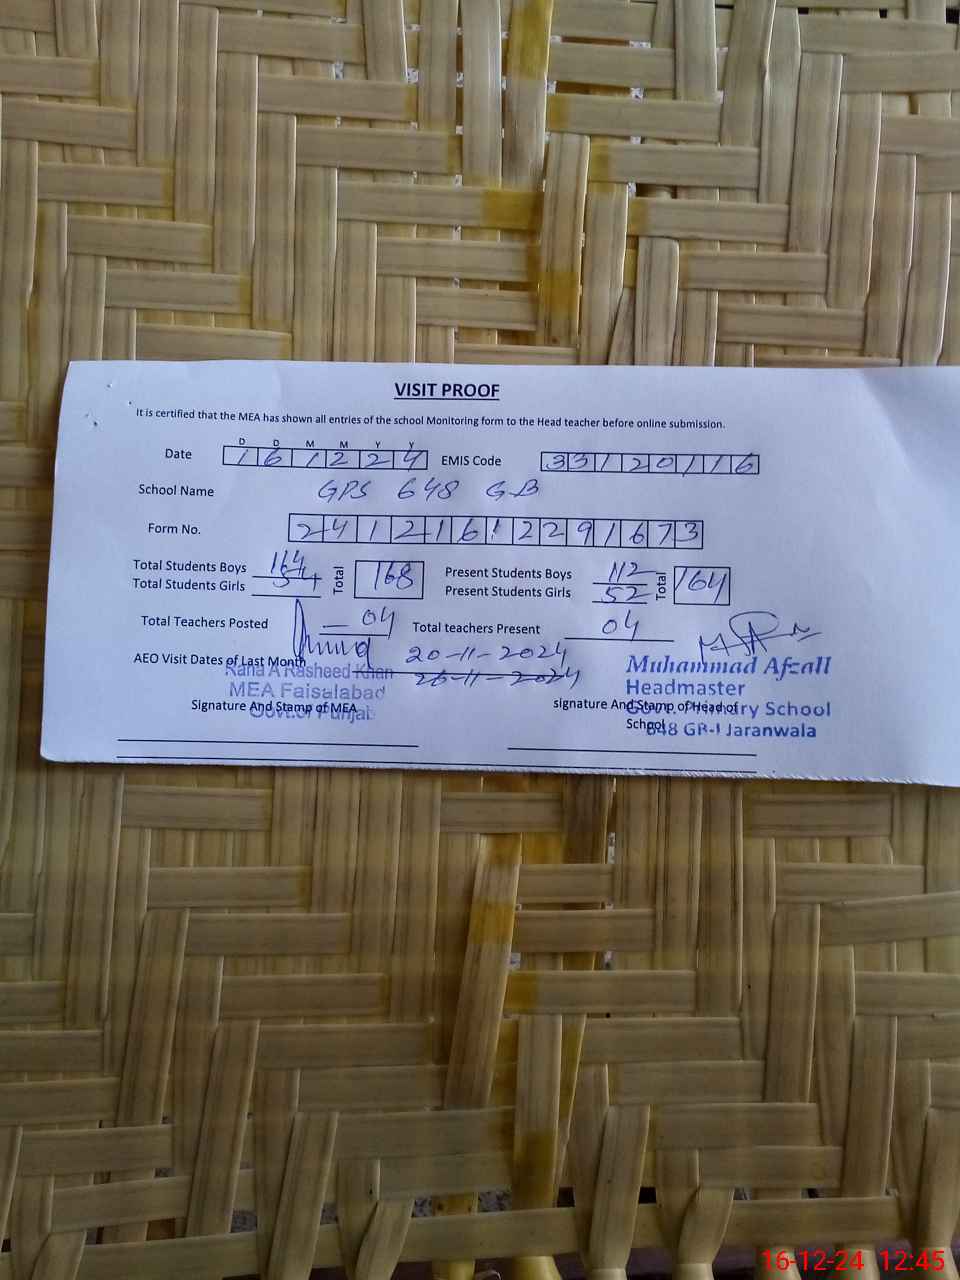 VISIT PROOF
It is certified that the MEA has shown all entries of the school Monitoring form to the Head teacher before online submission.
D D M M Y Y
Date 161224 EMIS Code 33120116
School Name GPS 648 GB
Form No. 24121612291673
Total Students Boys 114
Total Students Girls 54
Total 168
Present Students Boys 112
Present Students Girls 52
Total 164
Total Teachers Posted 04 Total teachers Present 04
AEO Visit Dates of Last Month 20-11-2024
26-11-2024
Rana A Rasheed Khan
MEA Faisalabad
Govt. of Punjab
Signature And Stamp of MEA
Muhammad Afzall
Headmaster
Govt. Primary School
648 GB-I Jaranwala
signature And Stamp of Head of
School
16-12-24 12:45